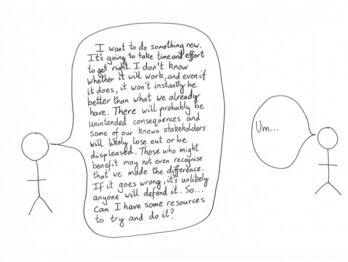 I want to do something new.
It's going to take time and effort
to get right. I don't know
whether it will work, and even if
it does, it won't instantly be
better than what we already
have. There will probably be
unintended consequences and
some of our known stakeholders
will likely lose out or be
displeased. Those who might
benefit may not even recognise
that we made the difference.
If it goes wrong, it's unlikely
anyone will defend it. So...
Can I have some resources
to try and do it?
Um...